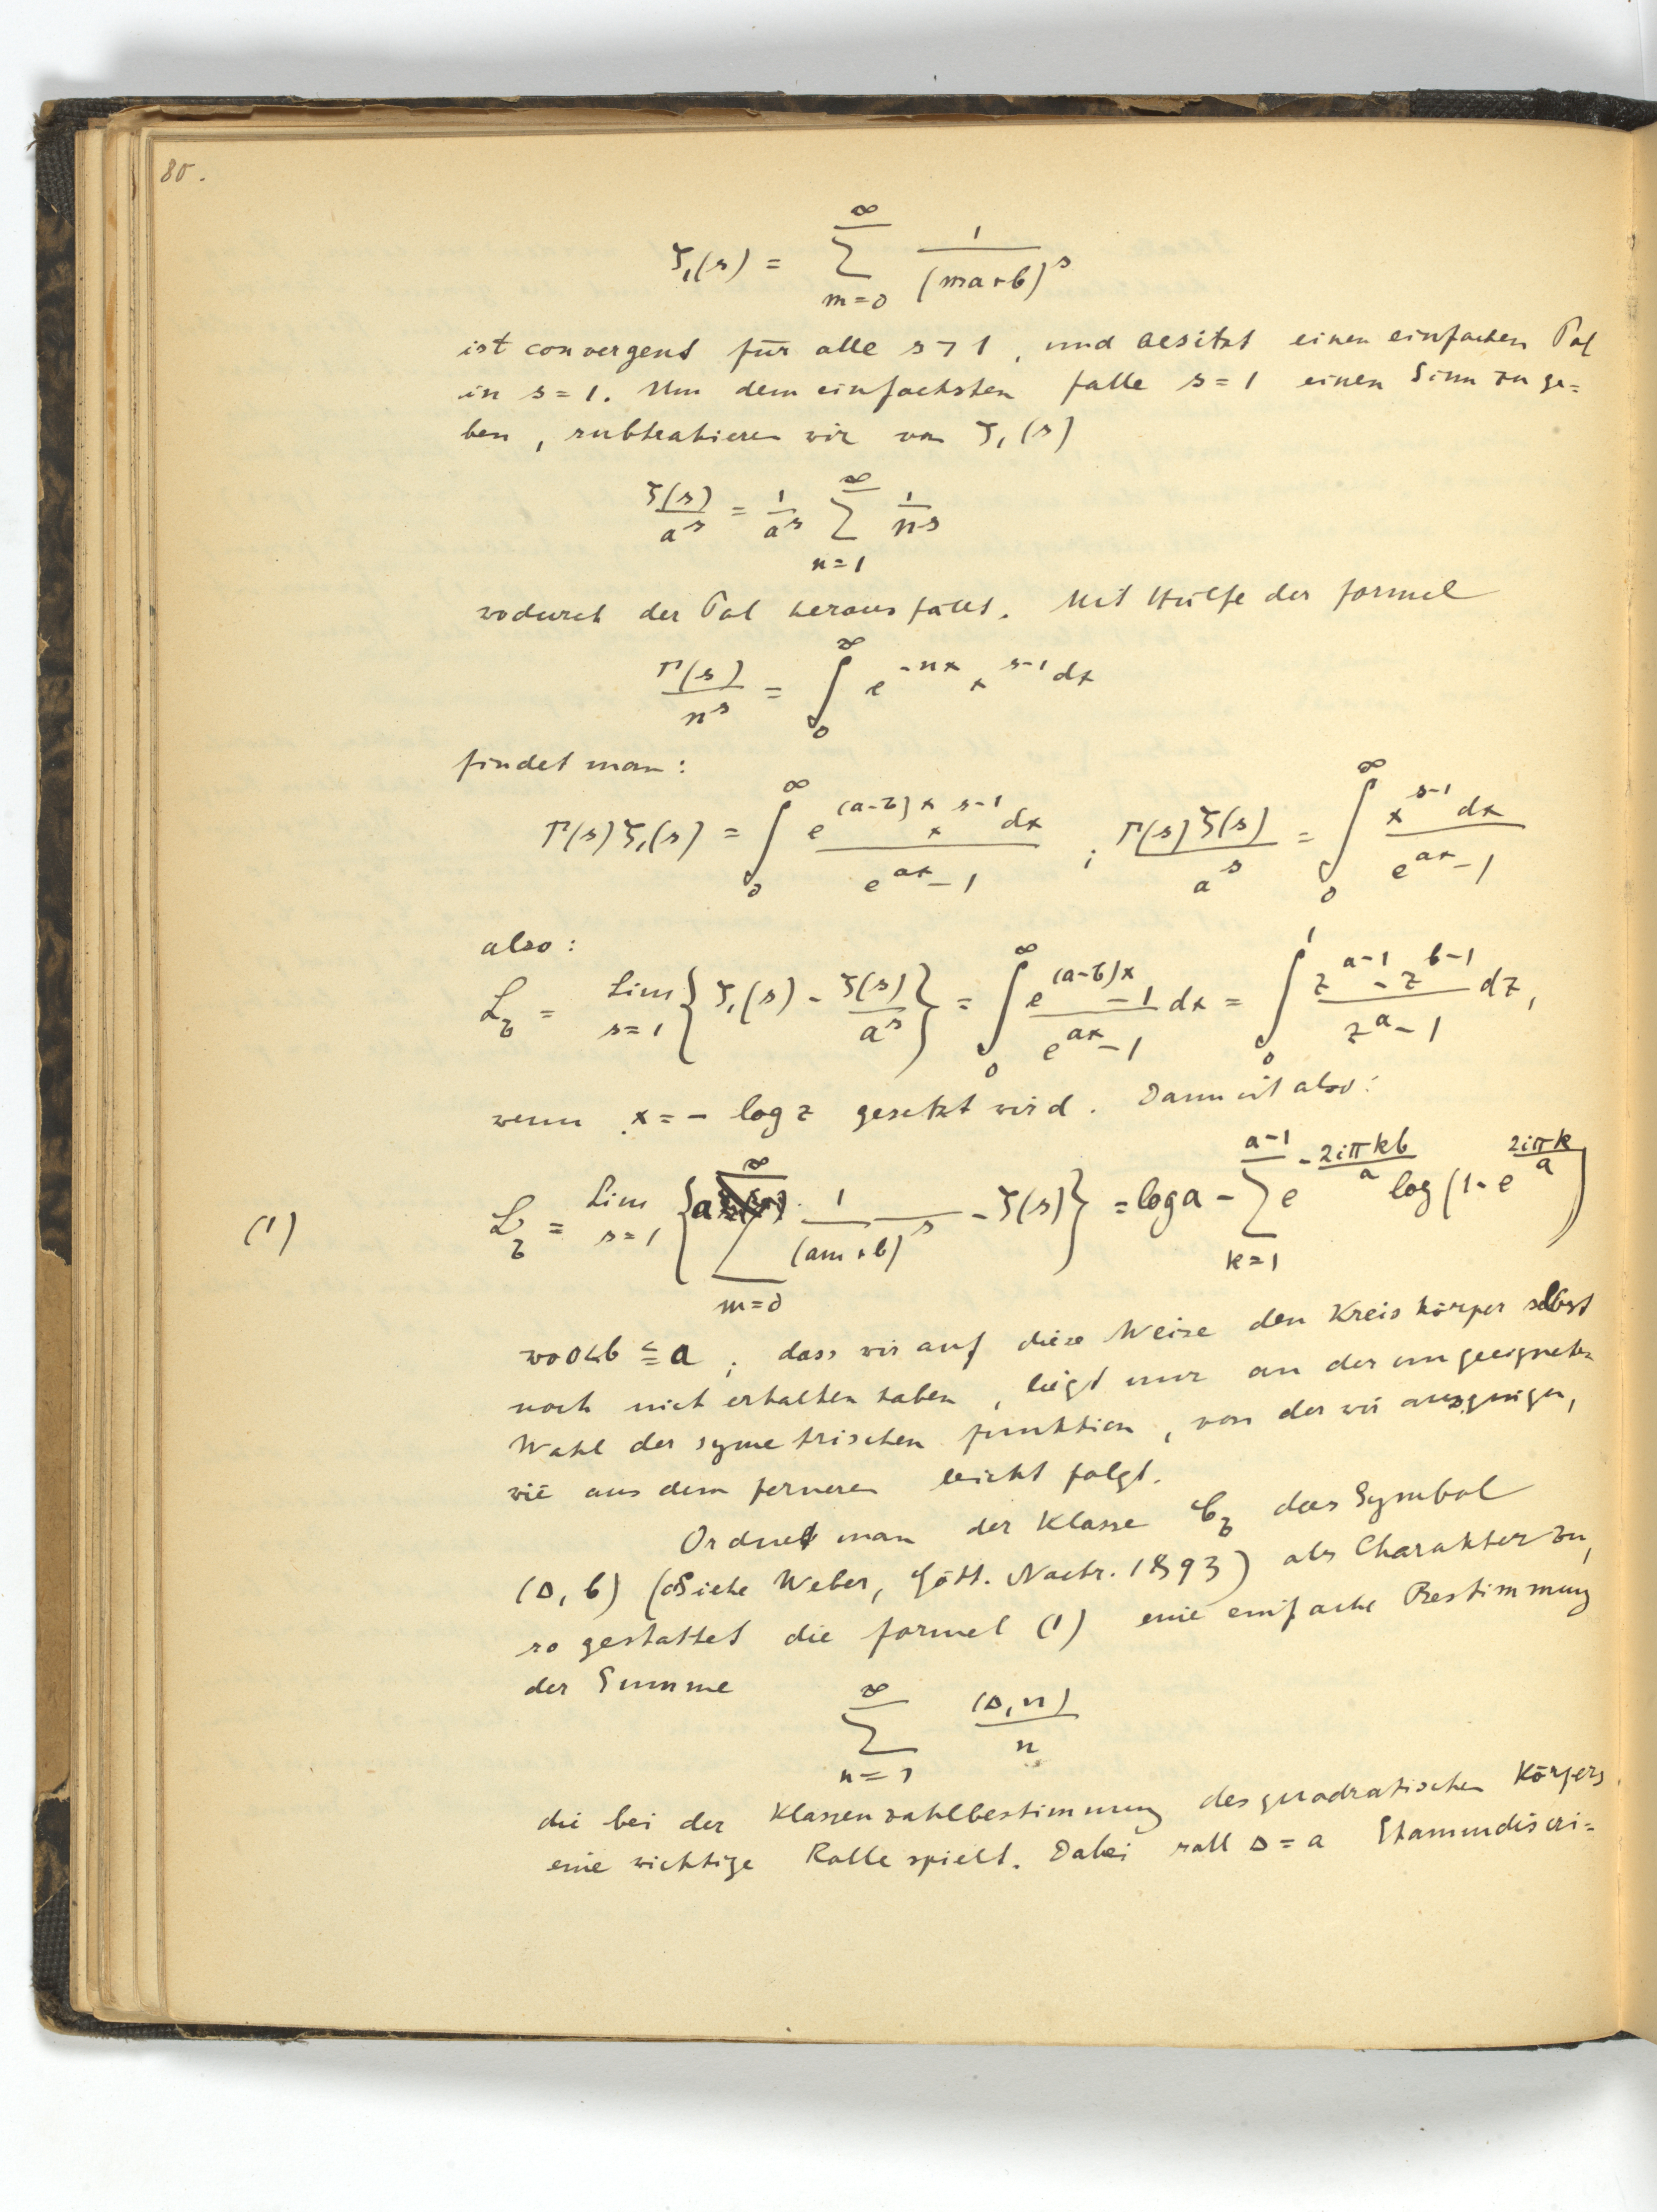 80.
ζ₁(s) = ∑_{m=0}^{∞} 1/(ma+b)^s
ist convergent für alle s > 1, und besitzt einen einfachen Pol
in s = 1. Um dem einfachsten Falle s = 1 einen Sinn zu ge=
ben, subtrahieren wir von ζ₁(s)
ζ(s)/a^s = 1/a^s ∑_{n=1}^{∞} 1/n^s
wodurch der Pol herausfällt. Mit Hülfe der Formel
Γ(s)/n^s = ∫_0^∞ e^{-nx} x^{s-1} dx
findet man:
Γ(s) ζ₁(s) = ∫_0^∞ e^{(a-b)x} x^{s-1} dx / (e^{ax} - 1) ; Γ(s) ζ(s)/a^s = ∫_0^∞ x^{s-1} dx / (e^{ax} - 1)
also:
L_b = Lim_{s=1} { ζ₁(s) - ζ(s)/a^s } = ∫_0^∞ (e^{(a-b)x} - 1)/(e^{ax} - 1) dx = ∫_0^1 (z^{a-1} - z^{b-1})/(z^a - 1) dz,
wenn x = - log z gesetzt wird. Dann ist also:
(1) L_b = Lim_{s=1} { a ∑_{m=0}^{∞} 1/(am+b)^s - ζ(s) } = log a - ∑_{k=1}^{a-1} e^{-2iπkb/a} log (1 - e^{2iπk/a})
wo 0<b ≦ a ; dass wir auf diese Weise den Kreiskörper selbst
noch nicht erhalten haben, liegt nur an der ungeeigneten
Wahl der symetrischen Funktion, von der wir ausgingen,
wie aus dem ferneren leicht folgt.
Ordnet man der Klasse C_b das Symbol
(Δ, b) (Siehe Weber, Gött. Nachr. 1893) als Charakter zu,
so gestattet die Formel (1) eine einfache Bestimmung
der Summe
∑_{n=1}^{∞} (Δ, n)/n
die bei der Klassenzahlbestimmung des quadratischen Körpers
eine wichtige Rolle spielt. Dabei soll Δ = a Stammdiscri=